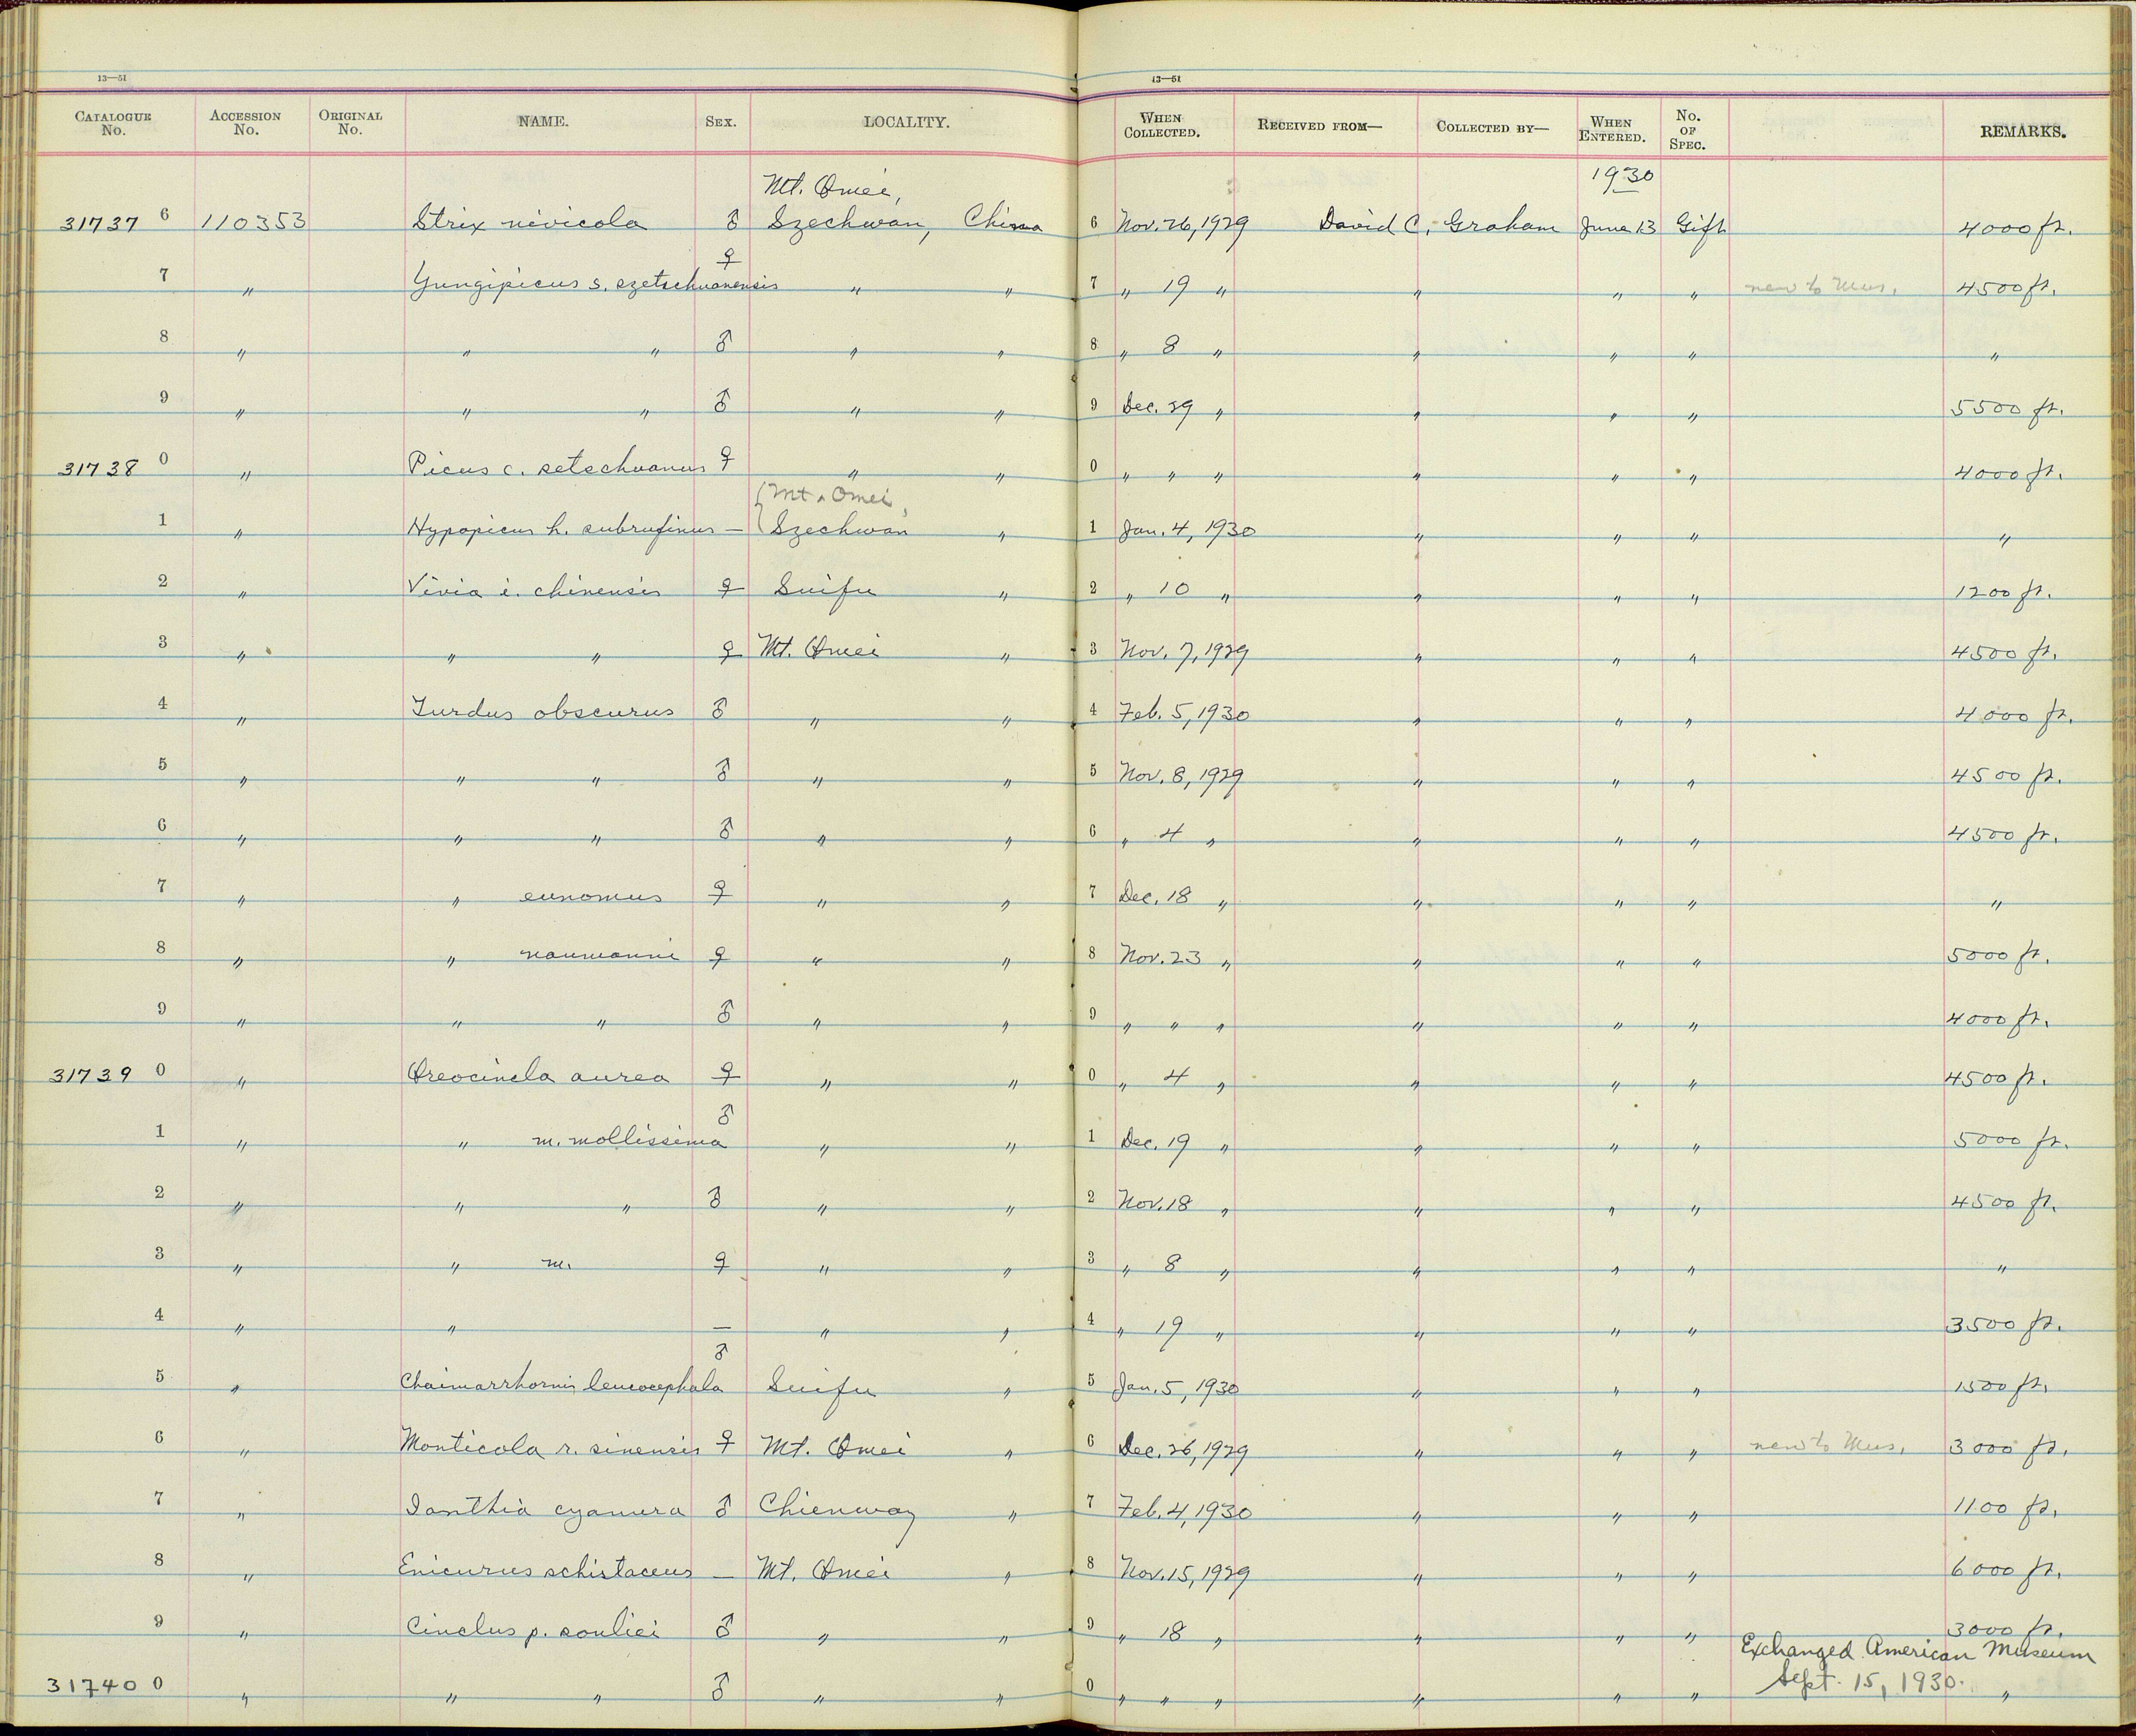 13—51
13—51
CATALOGUE No. ACCESSION No. ORIGINAL No. NAME. SEX. LOCALITY. WHEN COLLECTED. RECEIVED FROM— COLLECTED BY— WHEN ENTERED. No. OF SPEC. REMARKS.
Mt. Omei, 1930
31737 6 110353 Strix nivicola ♂ Szechwan, China 6 Nov. 26, 1929 David C. Graham June 13 Gift 4000 ft.
7 " Yungipicus s. szetschuanensis ♀ " " 7 " 19 " " " " new to Mus. 4500 ft.
8 " " " ♂ " " 8 " 8 " " " " "
9 " " " ♂ " " 9 Dec. 29 " " " " 5500 ft.
31738 0 " Picus c. setschuanus ♀ " " 0 " " " " " " 4000 ft.
Mt. Omei,
1 " Hypopicus h. subrufinus — Szechwan " 1 Jan. 4, 1930 " " " "
2 " Vivia i. chinensis ♀ Suifu " 2 " 10 " " " " 1200 ft.
3 " " " ♀ Mt. Omei " 3 Nov. 7, 1929 " " " 4500 ft.
4 " Turdus obscurus ♂ " " 4 Feb. 5, 1930 " " " 4000 ft.
5 " " " ♂ " " 5 Nov. 8, 1929 " " " 4500 ft.
6 " " " ♂ " " 6 " 4 " " " " 4500 ft.
7 " " eunomus ♀ " " 7 Dec. 18 " " " " "
8 " " naumanni ♀ " " 8 Nov. 23 " " " " 5000 ft.
9 " " " ♂ " " 9 " " " " " " 4000 ft.
31739 0 " Oreocincla aurea ♀ " " 0 " 4 " " " " 4500 ft.
1 " " m. mollissima ♂ " " 1 Dec. 19 " " " " 5000 ft.
2 " " " ♂ " " 2 Nov. 18 " " " " 4500 ft.
3 " " m. ♀ " " 3 " 8 " " " " "
4 " " — " " 4 " 19 " " " " 3500 ft.
5 " Chaimarrhornis leucocephala ♂ Suifu " 5 Jan. 5, 1930 " " " 1500 ft.
6 " Monticola r. sinensis ♀ Mt. Omei " 6 Dec. 26, 1929 " " " new to Mus. 3000 ft.
7 " Ianthia cyanura ♂ Chienway " 7 Feb. 4, 1930 " " " 1100 ft.
8 " Enicurus schistaceus — Mt. Omei " 8 Nov. 15, 1929 " " " 6000 ft.
9 " Cinclus p. souliei ♂ " " 9 " 18 " " " " 3000 ft.
Exchanged American Museum
31740 0 " " " ♂ " " 0 " " " " " " Sept. 15, 1930. "